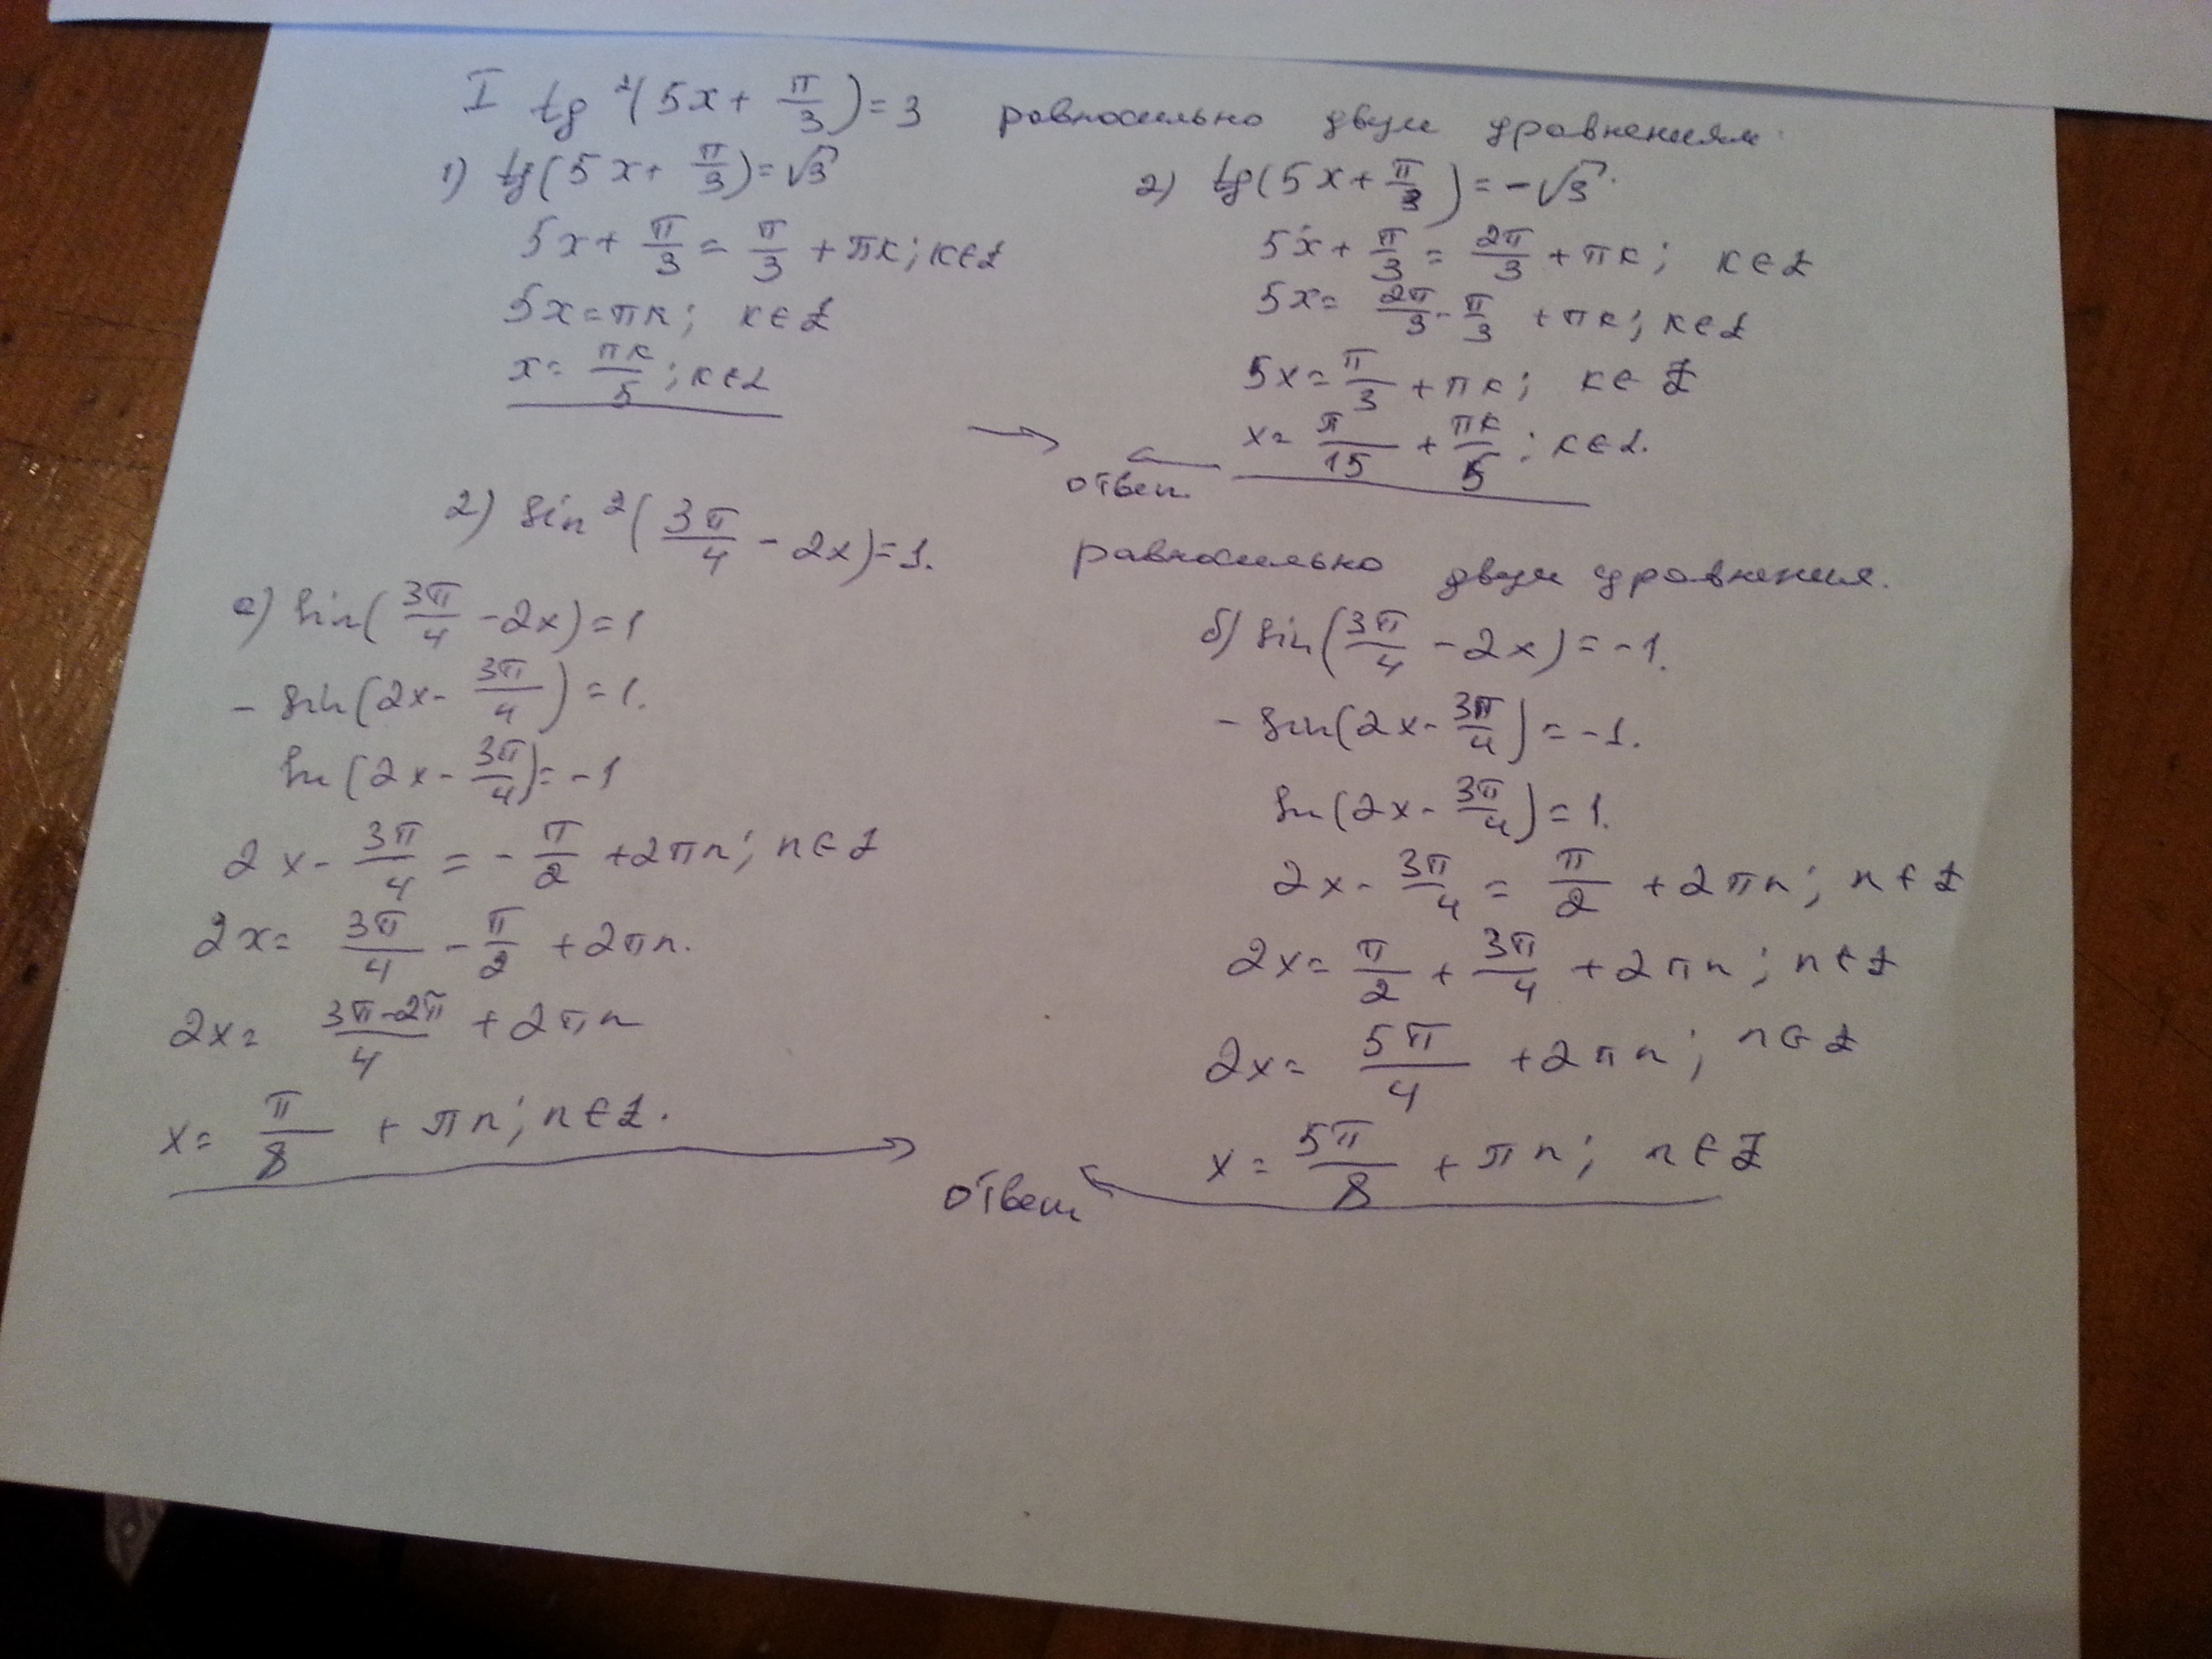 I tg²(5x + π/3) = 3 равносильно двум уравнениям
1) tg(5x + π/3) = √3
5x + π/3 = π/3 + πк; к∈Z
5x = πк; к∈Z
x = πк/5; к∈Z
2) tg(5x + π/3) = -√3.
5x + π/3 = 2π/3 + πк; к∈Z
5x = 2π/3 - π/3 + πк; к∈Z
5x = π/3 + πк; к∈Z
x = π/15 + πк/5; к∈Z.
→ ответ ←
2) sin²(3π/4 - 2x) = 1. равносильно двум уравнения.
а) sin(3π/4 - 2x) = 1
- sin(2x - 3π/4) = 1.
sin(2x - 3π/4) = -1
2x - 3π/4 = - π/2 + 2πn; n∈Z
2x = 3π/4 - π/2 + 2πn.
2x = (3π-2π)/4 + 2πn
x = π/8 + πn; n∈Z.
б) sin(3π/4 - 2x) = -1.
- sin(2x - 3π/4) = -1.
sin(2x - 3π/4) = 1.
2x - 3π/4 = π/2 + 2πn; n∈Z
2x = π/2 + 3π/4 + 2πn; n∈Z
2x = 5π/4 + 2πn; n∈Z
x = 5π/8 + πn; n∈Z
→ ответ ←